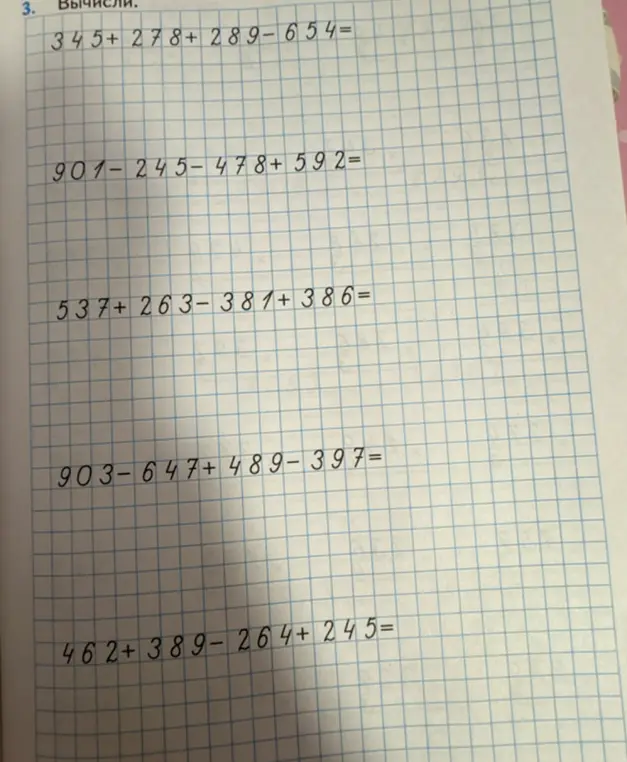 3. Вычисли.
345+ 278+ 289- 654=
901- 245- 478+ 592=
537+ 263- 381+ 386=
903- 647+ 489- 397=
462+ 389- 264+ 245=